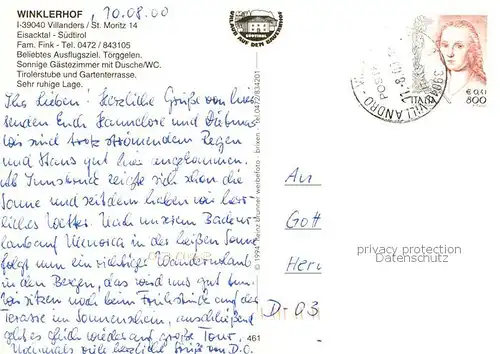 WINKLERHOF, 10.08.00
I-39040 Villanders / St. Moritz 14
Eisacktal - Südtirol
Fam. Fink - Tel. 0472 / 843105
Beliebtes Ausflugsziel. Törggelen.
Sonnige Gästezimmer mit Dusche/WC.
Tirolerstube und Gartenterrasse.
Sehr ruhige Lage.
Ihr Lieben! Herzliche Grüße von hier
senden Euch Hannelore und Dietmar
sind trotz strömendem Regen
und Staus gut hier angekommen.
Ab Innsbruck zeigte sich schon die
Sonne und seitdem haben wir herr-
liches Wetter. Nach unserem Badeur-
laub auf Menorca in der heißen Sonne
folgt nun ein richtiger Wanderurlaub
in den Bergen, das wird uns gut tun.
Wir sitzen noch beim Frühstück auf der
Terasse im Sonnenschein, anschließend
geht es gleich wieder auf große Tour.
Nochmals viele herzliche Grüße von D.O.
© 1994 Heinz Brunner werbefoto - brixen - Tel. 0472/834201
461
SÜDTIROL
ITALIA
€ 0,41
800
11-8-00
An
Gott
Herr
D-03
privacy protection
Datenschutz